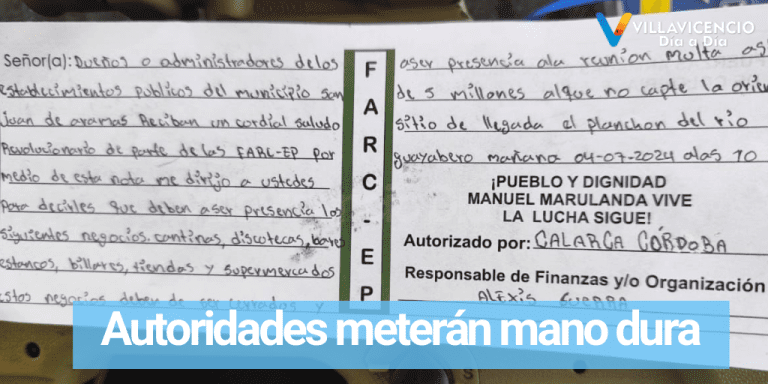 VILLAVICENCIO
Día a Día
Señor(a): Dueños o administradores delos
establecimientos publicos del municipio san
juan de aramas Reciban un cordial saludo
Revolucionario de parte de las FARC-EP por
medio de esta nota me dirijo a ustedes
Para decirles que deben aser presencia los
siguientes negocios. cantinas, discotecas, bares
estancos, billares, tiendas y supermercados
estos negocios deben de ser cerrados y
FARC-EP
aser presencia ala reunion multa as
de 5 millones alque no capte la orien
sitio de llegada el planchon del rio
guayabero mañana 04-07-2024 alas 10
¡PUEBLO Y DIGNIDAD
MANUEL MARULANDA VIVE
LA LUCHA SIGUE!
Autorizado por: CALARCA CÓRDOBA
Responsable de Finanzas y/o Organización
ALEXIS GUERRA
Autoridades meterán mano dura